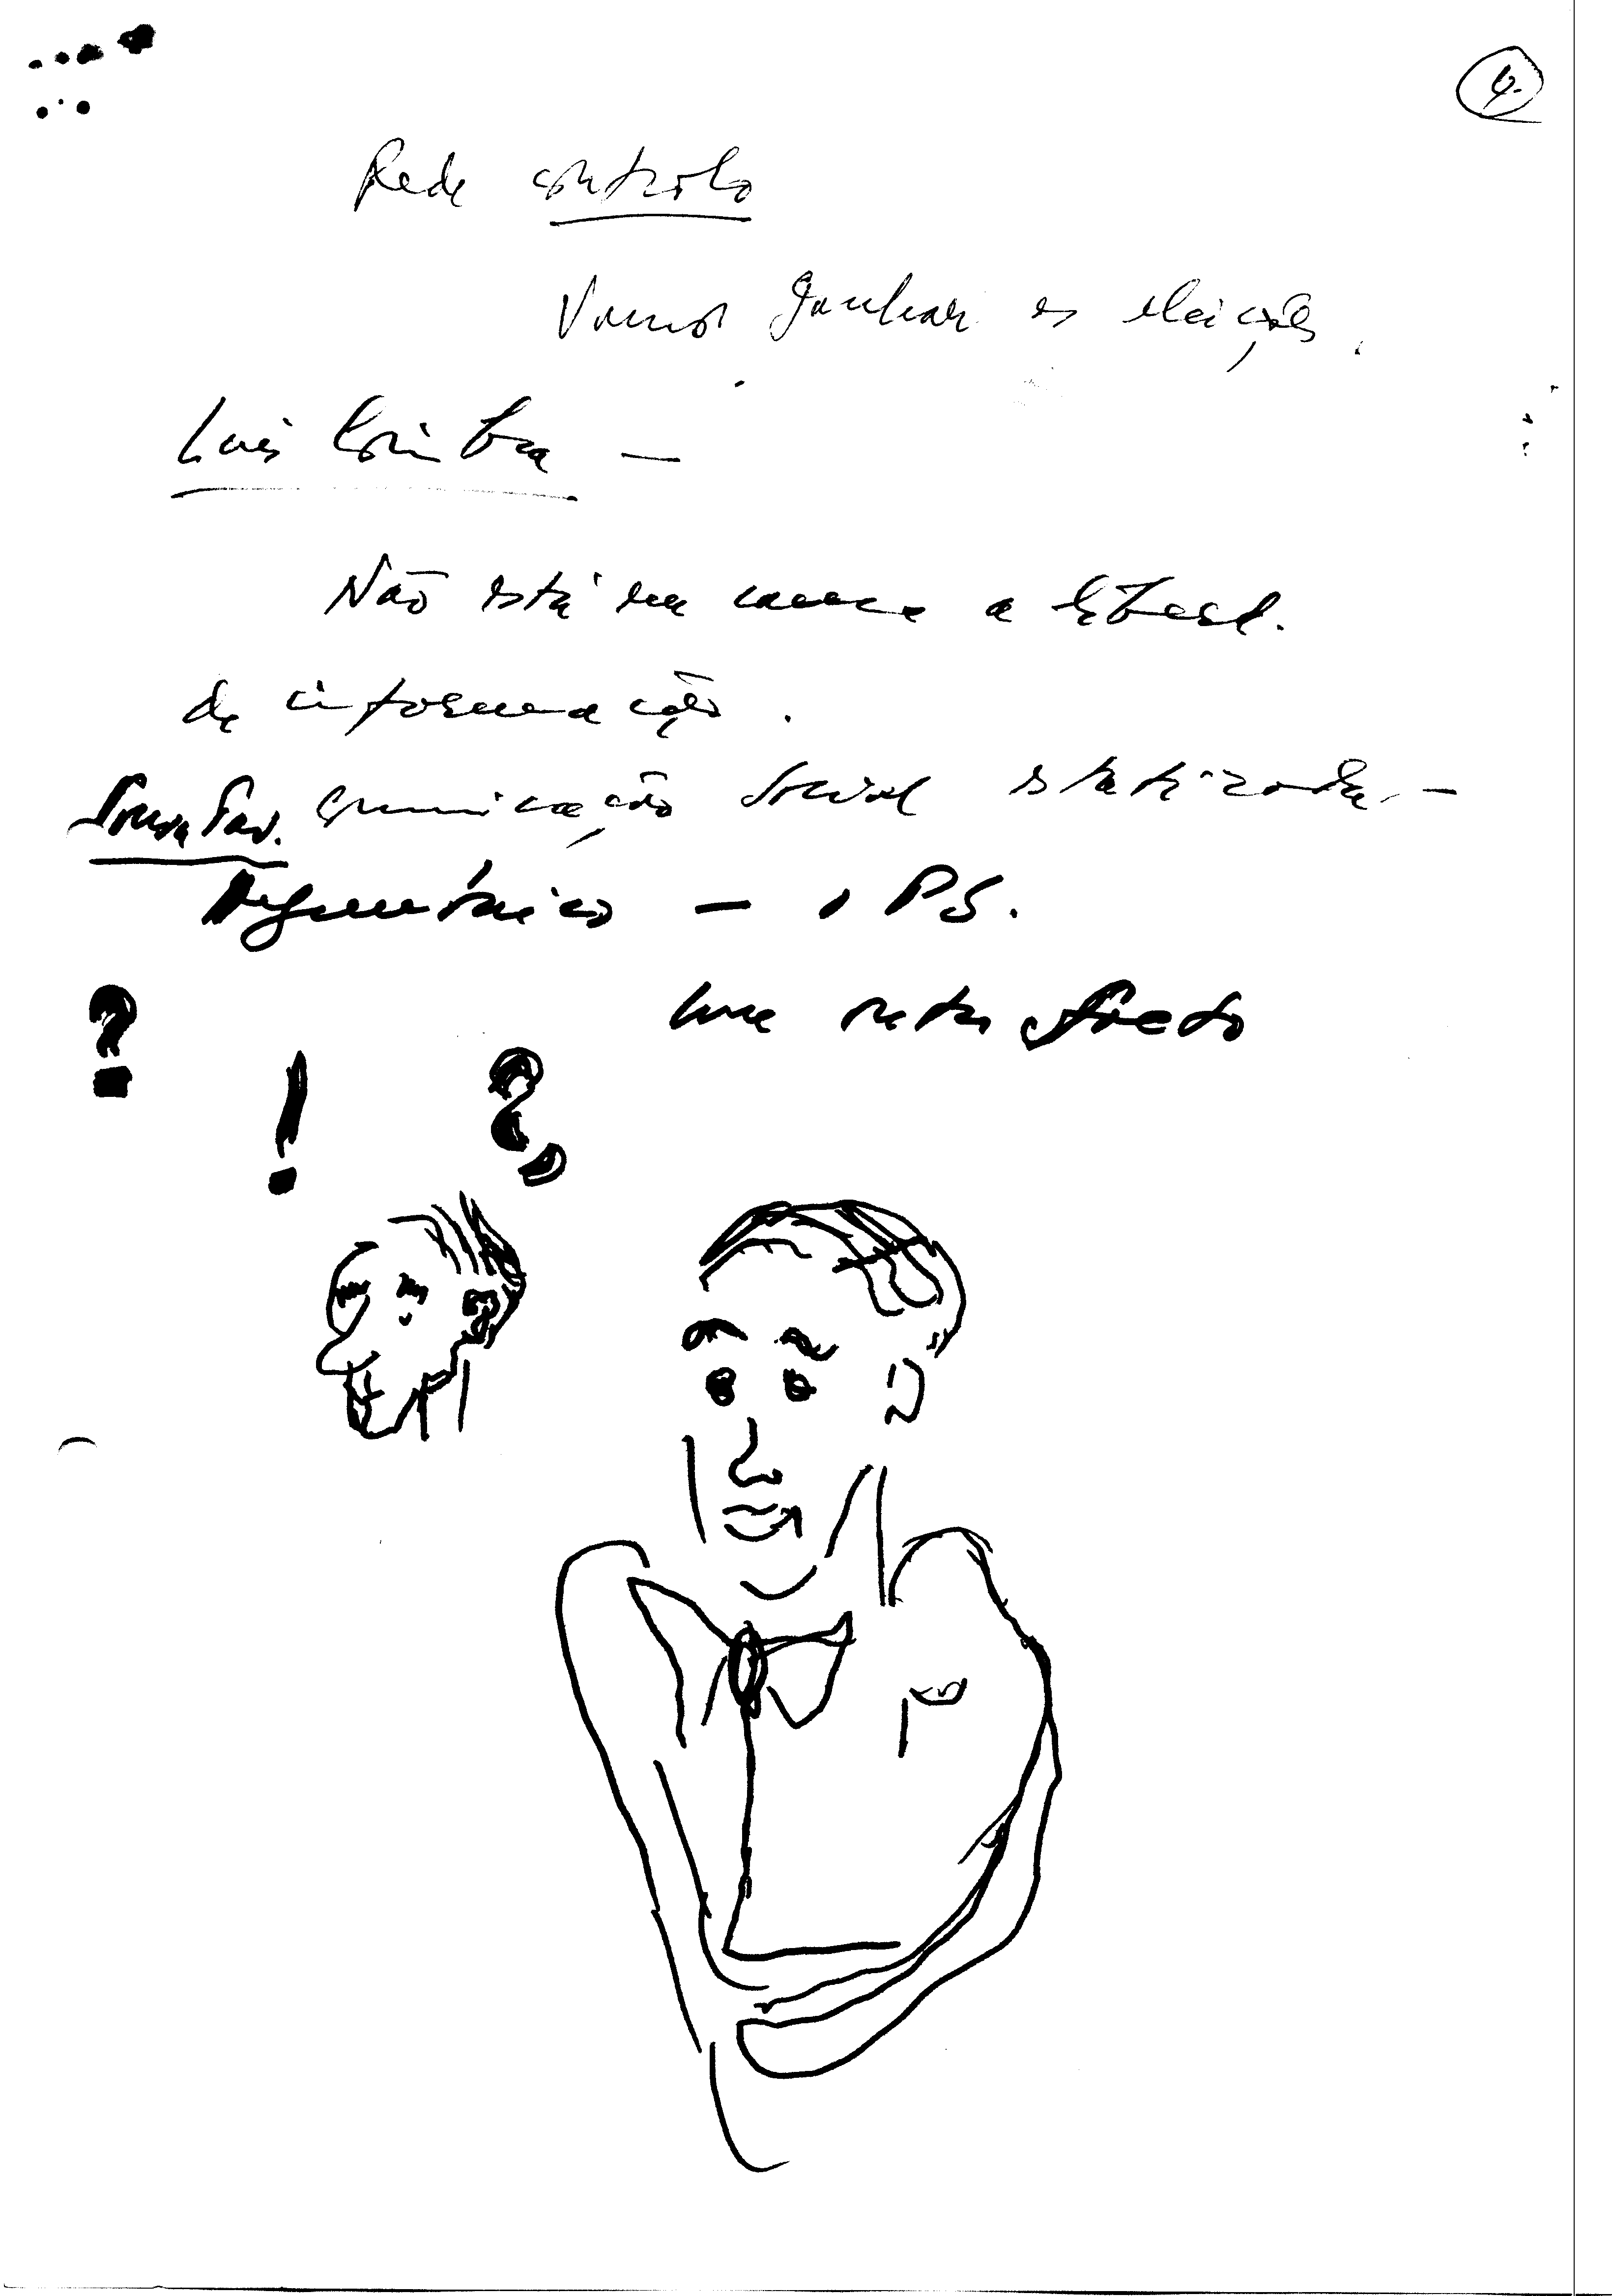 4.
Rede controlo
Vamos ganhar as eleições.
Luís Coimbra —
Não está em causa a liberd.
de informação.
Sousa Tav. comunicação social estatizada, —
— o PS.
? ! ?